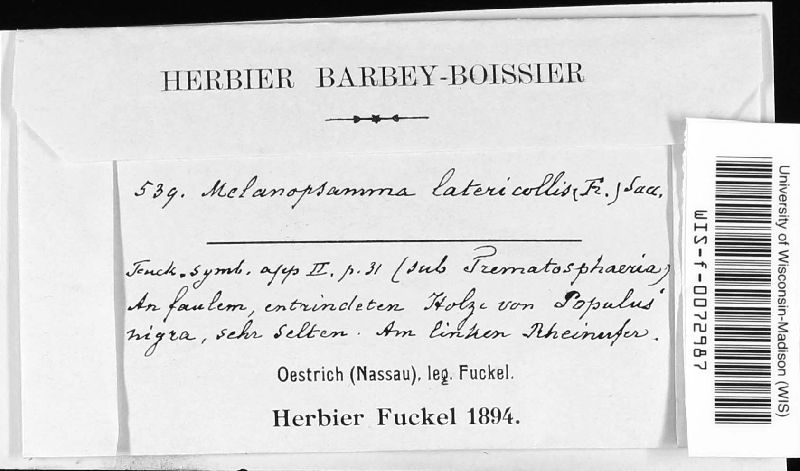 HERBIER BARBEY-BOISSIER
539. Melanopsamma latericollis (Fr.) Sacc.
Fuck. symb. app II. p. 31 (sub Trematosphaeria)
An faulem, entrindeten Holze von Populus
nigra, sehr selten. Am linken Rheinufer.
Oestrich (Nassau), leg. Fuckel.
Herbier Fuckel 1894.
University of Wisconsin-Madison (WIS)
WIS-f-0072987